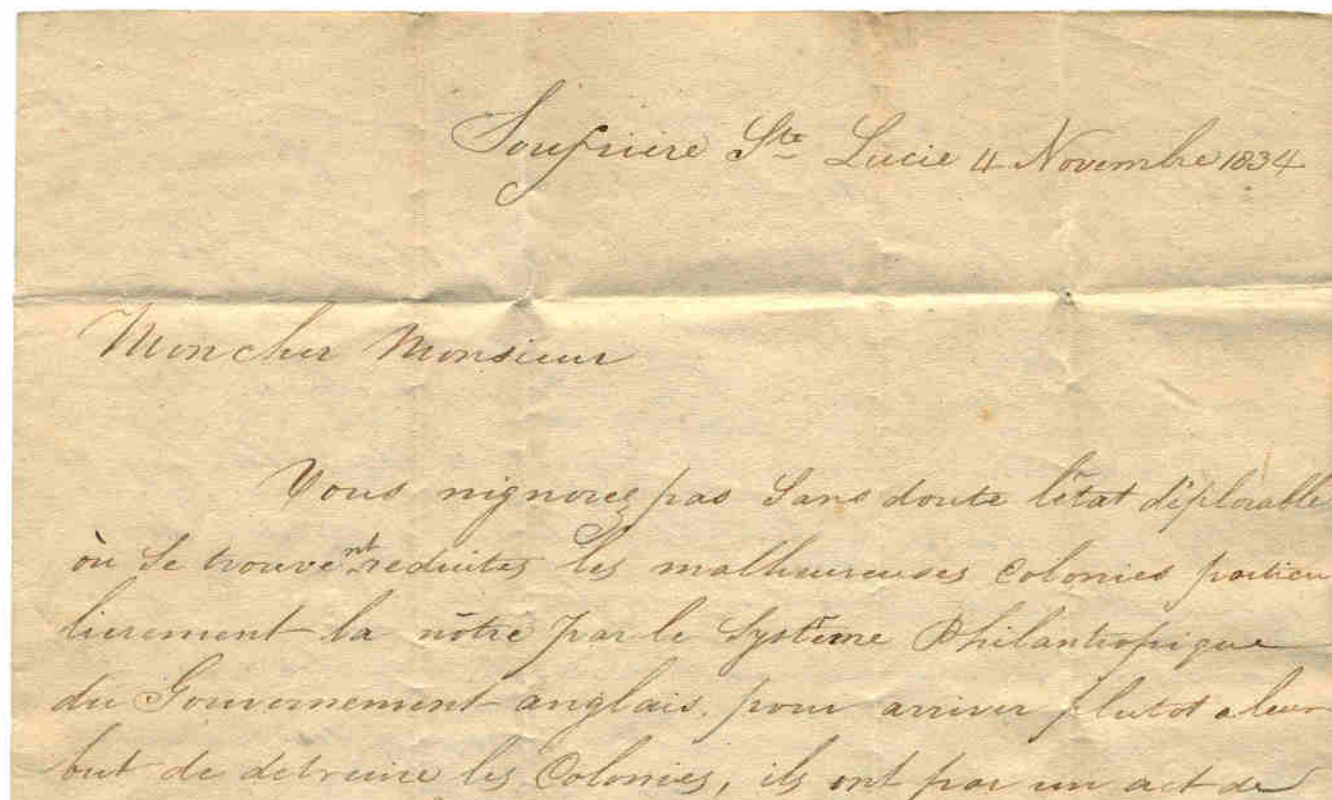 Soufriere Ste Lucie 4 Novembre 1834
Mon cher Monsieur
Vous nignorez pas Sans doute l'état déplorable
où Se trouvent reduites les malheureuses Colonies particu
lierement la nôtre par le Système Philantropique
du Gouvernement anglais, pour arriver plutot a leur
but de detruire les Colonies, ils ont par un act de